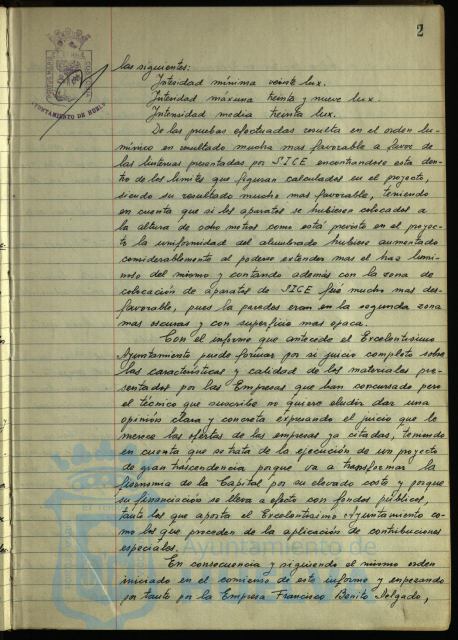 2
AYUNTAMIENTO DE HUELVA
las siguientes:
Intensidad mínima veinte lux.
Intensidad máxima treinta y nueve lux.
Intensidad media treinta lux.
De las pruebas efectuadas resulta en el orden lu-
mínico un resultado mucho mas favorable a favor de
las linternas presentadas por SICE encontrandose esta den-
tro de los limites que figuran calculados en el proyecto,
siendo su resultado mucho mas favorable, teniendo
en cuenta que si los aparatos se hubiesen colocados a
la altura de ocho metros como está previsto en el proyec-
to la uniformidad del alumbrado hubiese aumentado
considerablemente al poderse extender mas el haz lumi-
noso del mismo y contando además con la zona de
colocación de aparatos de SICE fué mucho mas des-
favorable, pues la paredes eran en la segunda zona
mas oscuras y con superficie mas opaca.
Con el informe que antecede el Excelentisimo
Ayuntamiento puede formar por si juicio completo sobre
las caracteristicas y calidad de los materiales pre-
sentados por las Empresas que han concursado pero
el técnico que suscribe no quiere eludir dar una
opinión clara y concreta expresando el juicio que le
merece las ofertas de las empresas ya citadas, teniendo
en cuenta que se trata de la ejecución de un proyecto
de gran trascendencia porque va a transformar la
fisonomia de la Capital por su elevado costo y porque
su financiación se lleva a efecto con fondos públicos,
tanto los que aporta el Excelentisimo Ayuntamiento co-
mo los que proceden de la aplicación de contribuciones
especiales.
Ayuntamiento de
En consecuencia y siguiendo el mismo orden
iniciado en el comienzo de este informe y empezando
por tanto por la Empresa Francisco Benito Delgado,